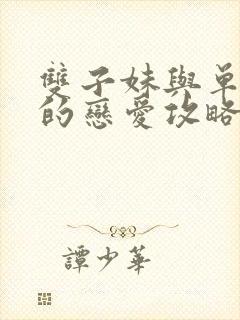 雙子妹與單
的戀愛攻略
譚少華